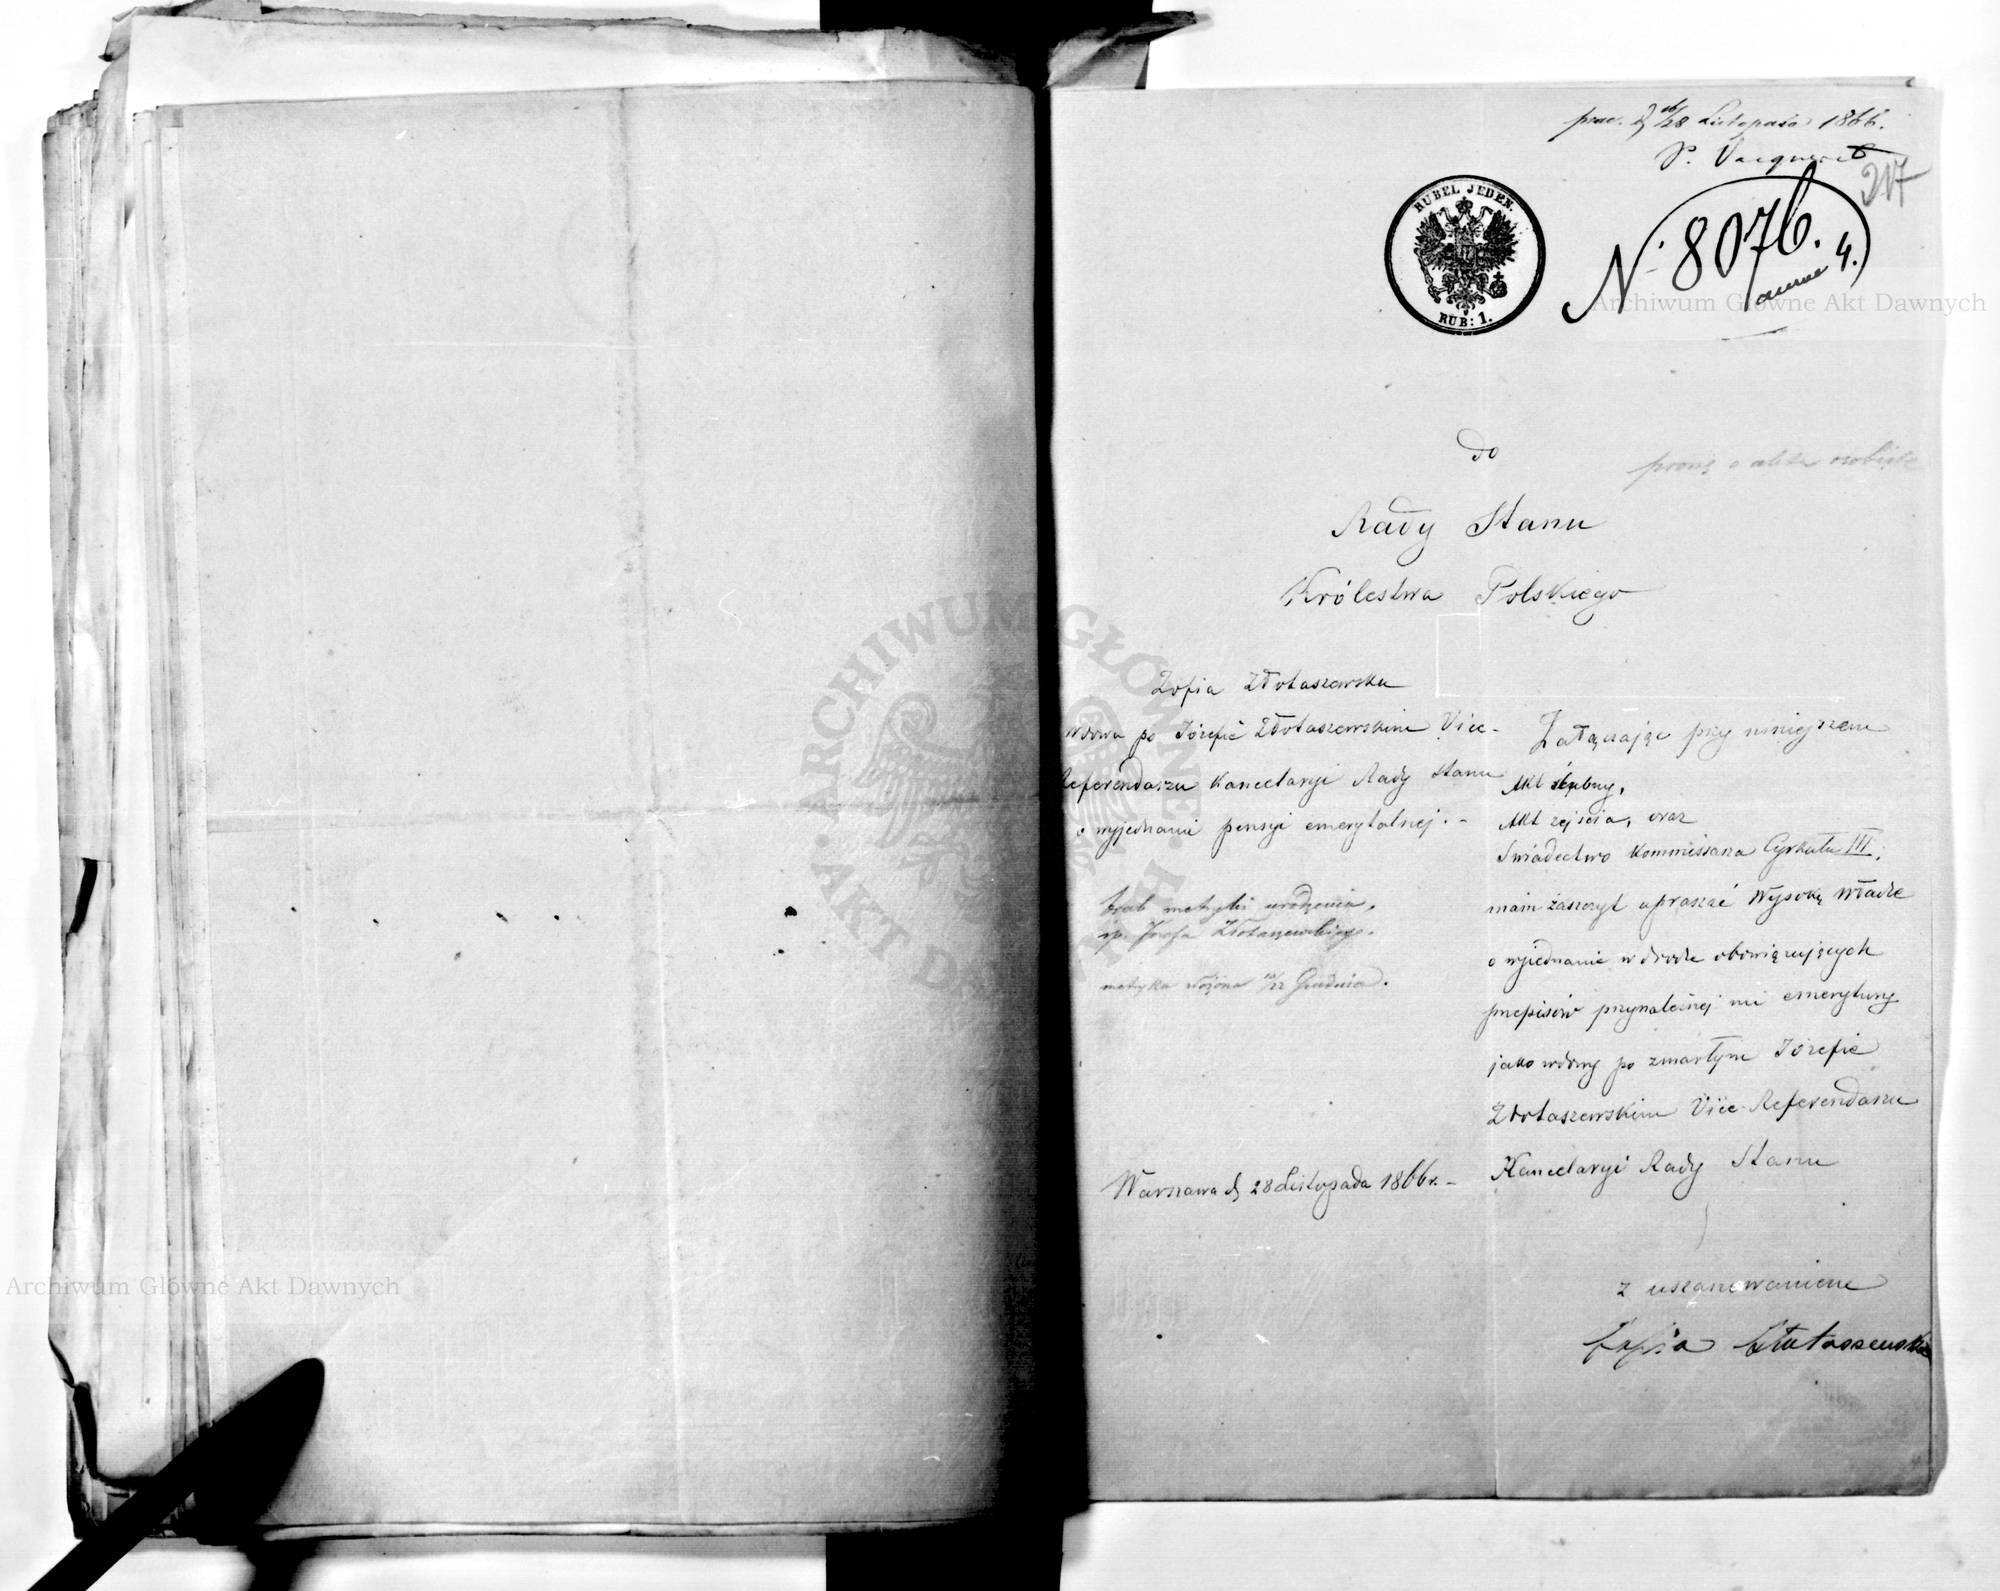 prez. d. 16/28 Listopada 1866.
217
RUBEL JEDEN.
RUB: 1.
N. 8076.
4.
Archiwum Główne Akt Dawnych
do
proszę o akta osobiste
Rady Stanu
Królestwa Polskiego
Zofia Złotaszewska
wdowa po Józefie Złotaszewskim Vice-
Referendarzu Kancelaryi Rady Stanu
o wyjednanie pensyi emerytalnej. -
brak metryki urodzenia,
śp. Józefa Złotaszewskiego.
metryka złożona 10/22 Grudnia.
Warszawa d. 28 Listopada 1866 r. -
Załączając przy niniejszem
Akt ślubny,
Akt zejścia, oraz
Świadectwo Kommissarza Cyrkułu III,
mam zaszczyt upraszać Wysoką Władzę
o wyjednanie w drodze obowiązujących
przepisów przynależnej mi emerytury
jako wdowy po zmarłym Józefie
Złotaszewskim Vice-Referendarzu
Kancelaryi Rady Stanu
z uszanowaniem
Zofia Złotaszewska
ARCHIWUM GŁÓWNE AKT DAWNYCH
Archiwum Główne Akt Dawnych